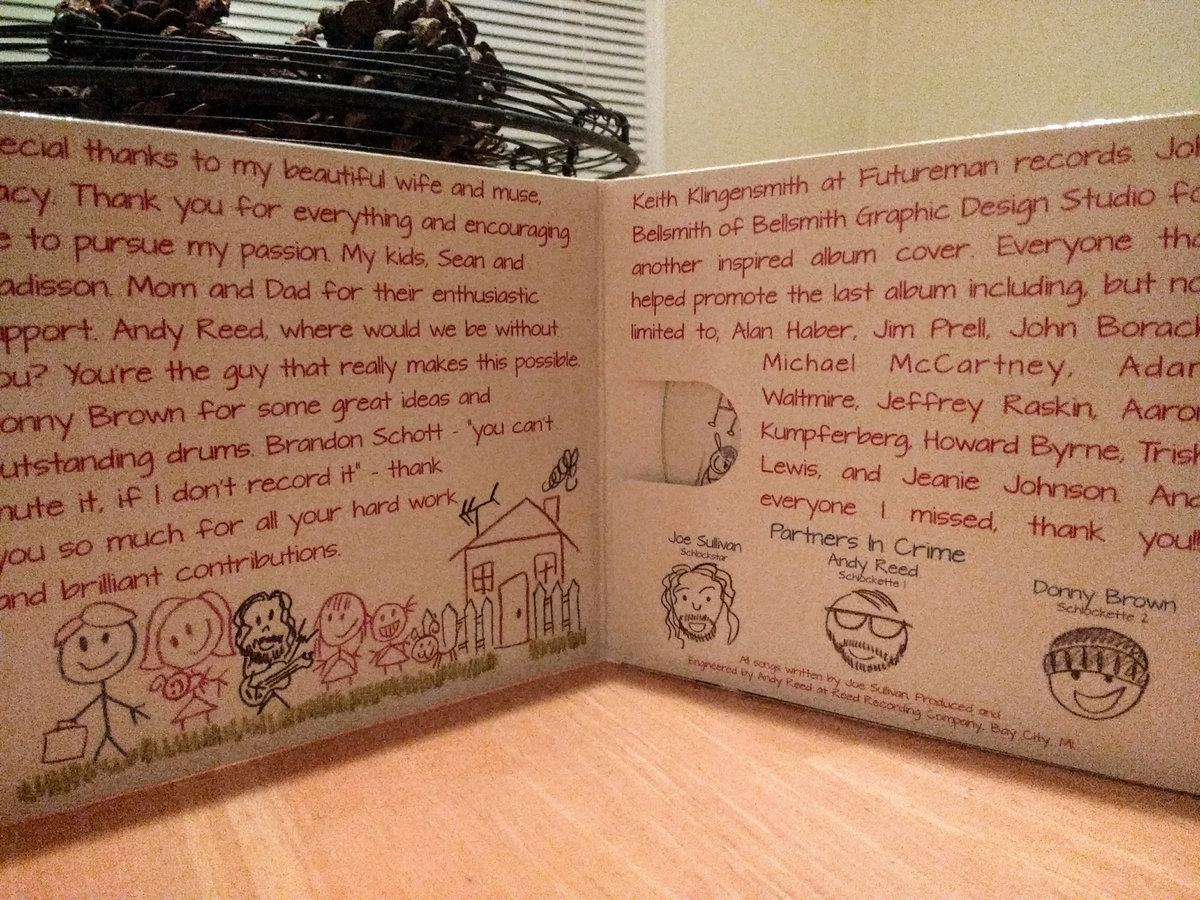 ecial thanks to my beautiful wife and muse,
acy. Thank you for everything and encouraging
e to pursue my passion. My kids, Sean and
adisson. Mom and Dad for their enthusiastic
pport. Andy Reed, where would we be without
ou? You're the guy that really makes this possible.
onny Brown for some great ideas and
utstanding drums. Brandon Schott - "you can't
mute it, if I don't record it" - thank
you so much for all your hard work
and brilliant contributions.
Keith Klingensmith at Futureman records. Joh
Bellsmith of Bellsmith Graphic Design Studio fo
another inspired album cover. Everyone tha
helped promote the last album including, but no
limited to; Alan Haber, Jim Prell, John Borack
Michael McCartney, Adam
Waltmire, Jeffrey Raskin, Aaron
Kumpferberg, Howard Byrne, Trish
Lewis, and Jeanie Johnson. And
everyone I missed, thank you!!
Partners In Crime
Joe Sullivan
Schlockstar
Andy Reed
Schlockette 1
Donny Brown
Schlockette 2
All songs written by Joe Sullivan. Produced and
Engineered by Andy Reed at Reed Recording Company, Bay City, MI.